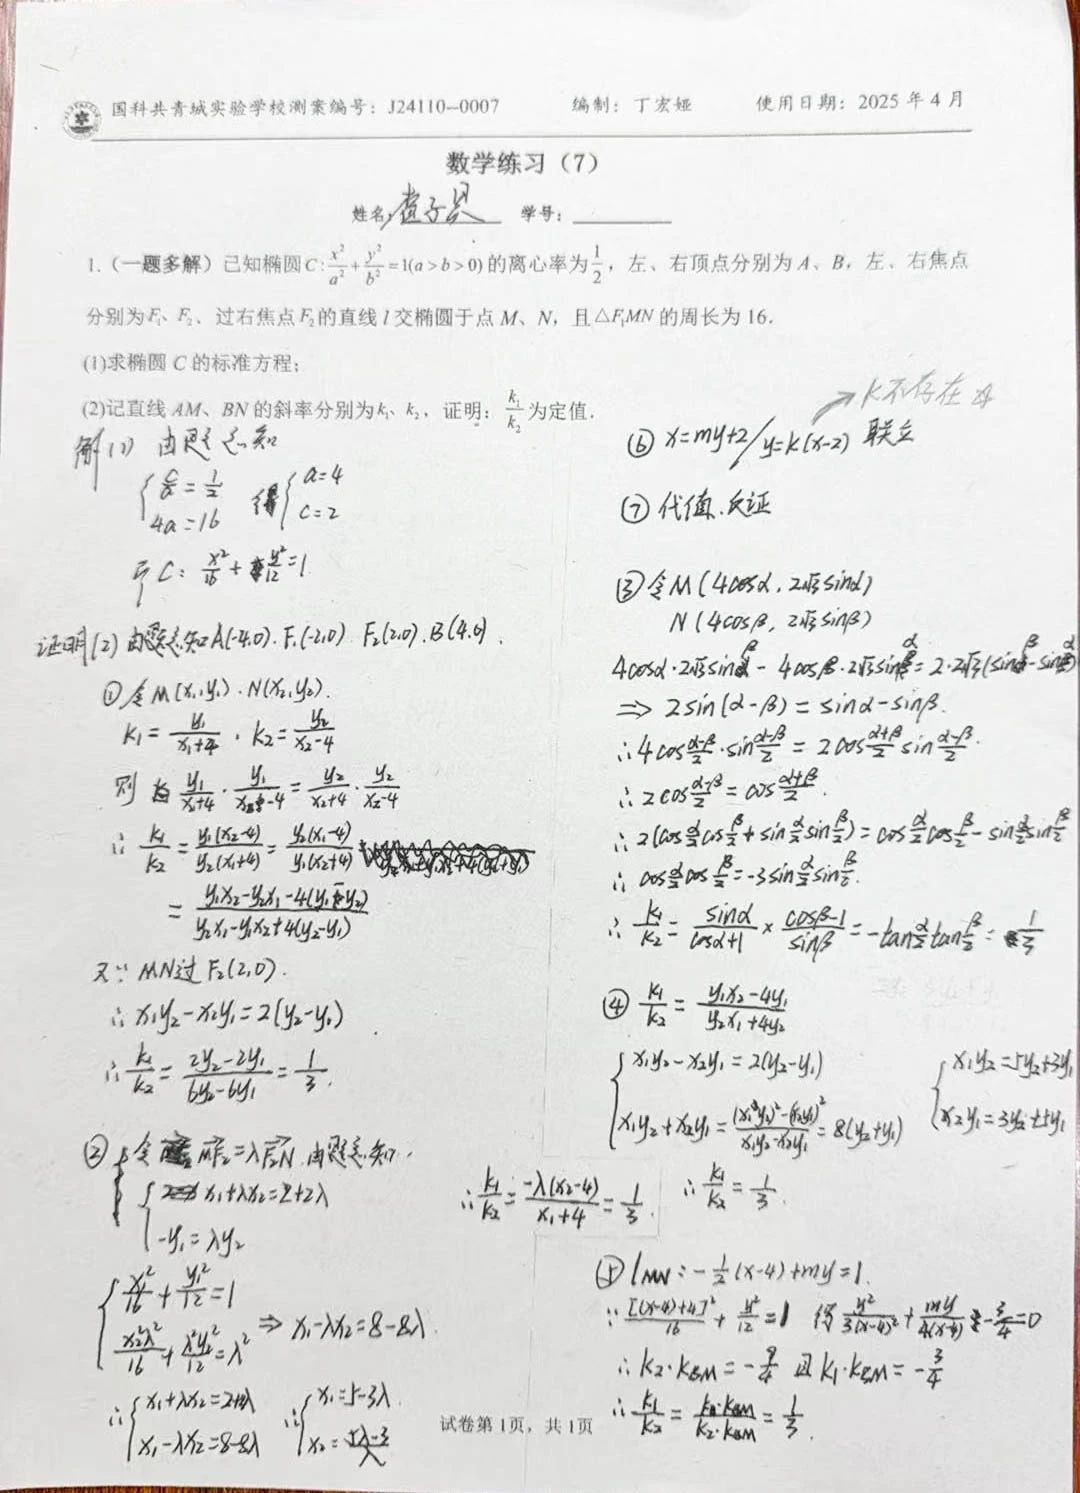 国科共青城实验学校测案编号：J24110-0007 编制：丁宏娅 使用日期：2025年4月
数学练习（7）
姓名： 学号：
1.（一题多解）已知椭圆C：x²/a²+y²/b²=1(a>b>0)的离心率为1/2，左、右顶点分别为A、B，左、右焦点
分别为F₁、F₂、过右焦点F₂的直线l交椭圆于点M、N，且△F₁MN的周长为16.
(1)求椭圆C的标准方程；
(2)记直线AM、BN的斜率分别为k₁、k₂，证明：k₁/k₂为定值.
解(1) 由题意知
{c/a=1/2 得{a=4
4a=16 c=2
即C：x²/16+y²/12=1
证明(2) 由题意知A(-4,0).F₁(-2,0) F₂(2,0).B(4,0).
①令M(x₁,y₁).N(x₂,y₂).
k₁=y₁/(x₁+4)，k₂=y₂/(x₂-4)
则 y₁/(x₁+4)·y₁/(x₁-4)=y₂/(x₂+4)·y₂/(x₂-4)
∴k₁/k₂=y₁(x₂-4)/y₂(x₁+4)=y₂(x₁-4)/y₁(x₂+4)
=(y₁x₂-y₂x₁-4(y₁-y₂))/(y₂x₁-y₁x₂+4(y₂-y₁))
又∵MN过F₂(2,0).
∴x₁y₂-x₂y₁=2(y₂-y₁)
∴k₁/k₂=(2y₂-2y₁)/(6y₂-6y₁)=1/3.
②令MF₂=λF₂N.由题意知.
{x₁+λx₂=2+2λ
-y₁=λy₂
{x₁²/16+y₁²/12=1
x₂²λ²/16+λ²y₂²/12=λ² ⇒x₁-λx₂=8-8λ.
∴{x₁+λx₂=2+2λ ∴{x₁=5-3λ
x₁-λx₂=8-8λ x₂=(5λ-3)/λ
∴k₁/k₂=-λ(x₂-4)/(x₁+4)=1/3.
→k不存在
⑥x=my+2/y=k(x-2) 联立
⑦代值.反证
③令M(4cosα,2√3sinα)
N(4cosβ,2√3sinβ)
4cosα·2√3sinβ-4cosβ·2√3sinα=2·2√3(sinβ-sinα)
⇒2sin(α-β)=sinα-sinβ.
∴4cos(α-β)/2·sin(α-β)/2=2cos(α+β)/2 sin(α-β)/2.
∴2cos(α-β)/2=cos(α+β)/2.
∴2(cosα/2cosβ/2+sinα/2sinβ/2)=cosα/2cosβ/2-sinα/2sinβ/2
∴cosα/2cosβ/2=-3sinα/2sinβ/2.
∴k₁/k₂=sinα/(cosα+1)×(cosβ-1)/sinβ=-tanα/2tanβ/2=1/3
④k₁/k₂=(y₁x₂-4y₁)/(y₂x₁+4y₂)
{x₁y₂-x₂y₁=2(y₂-y₁) {x₁y₂=5y₂+3y₁
x₁y₂+x₂y₁=((x₁y₂)²-(x₂y₁)²)/(x₁y₂-x₂y₁)=8(y₂+y₁) x₂y₁=3y₂+5y₁
∴k₁/k₂=1/3.
⑤l_MN：-1/2(x-4)+my=1.
∵[(x-4)+4]²/16+y²/12=1 得y²/3(x-4)²+my/4(x-4)-3/4=0
∴k₂·k_BM=-9/4 且k₁·k_BM=-3/4
∴k₁/k₂=k₁·k_BM/k₂·k_BM=1/3.
试卷第1页，共1页